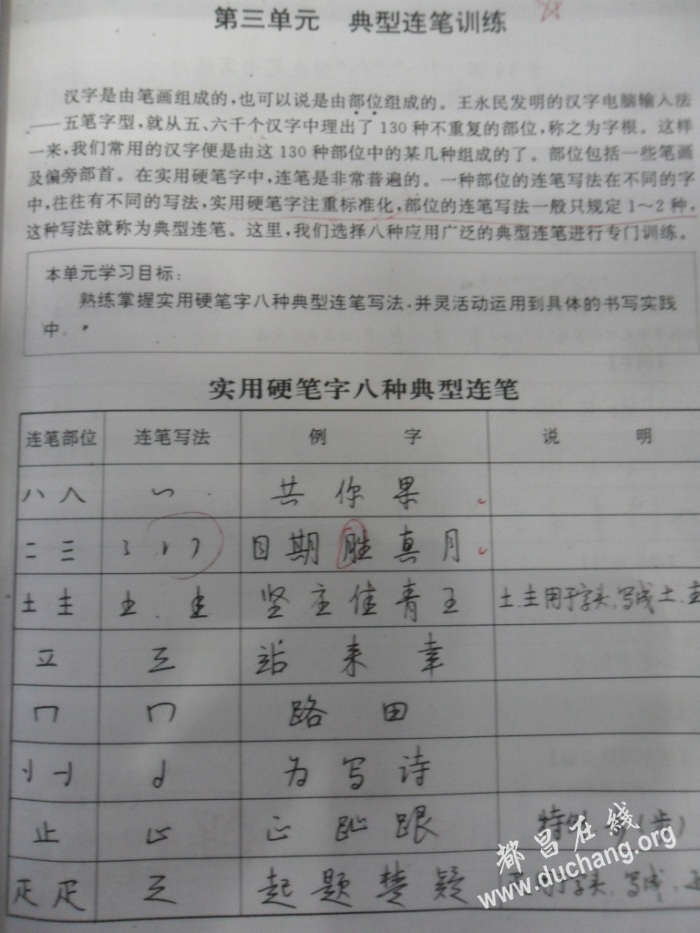 第三单元 典型连笔训练
汉字是由笔画组成的，也可以说是由部位组成的。王永民发明的汉字电脑输入法
——五笔字型，就从五、六千个汉字中理出了130种不重复的部位，称之为字根。这样
一来，我们常用的汉字便是由这130种部位中的某几种组成的了。部位包括一些笔画
及偏旁部首。在实用硬笔字中，连笔是非常普遍的。一种部位的连笔写法在不同的字
中，往往有不同的写法，实用硬笔字注重标准化，部位的连笔写法一般只规定1～2种，
这种写法就称为典型连笔。这里，我们选择八种应用广泛的典型连笔进行专门训练。
本单元学习目标：
熟练掌握实用硬笔字八种典型连笔写法，并灵活动运用到具体的书写实践
中。
实用硬笔字八种典型连笔
连笔部位 连笔写法 例 字 说 明
八 共 你 果
二 三 目 期 胜 真 月
土 圭 坚 庄 佳 青 王 土、主用于字头，写成土、
站 来 幸
路 田
为 写 诗
止 正 趾 跟 特例
起 题 楚 疑 用于字头，写成
都昌在线
www.duchang.org